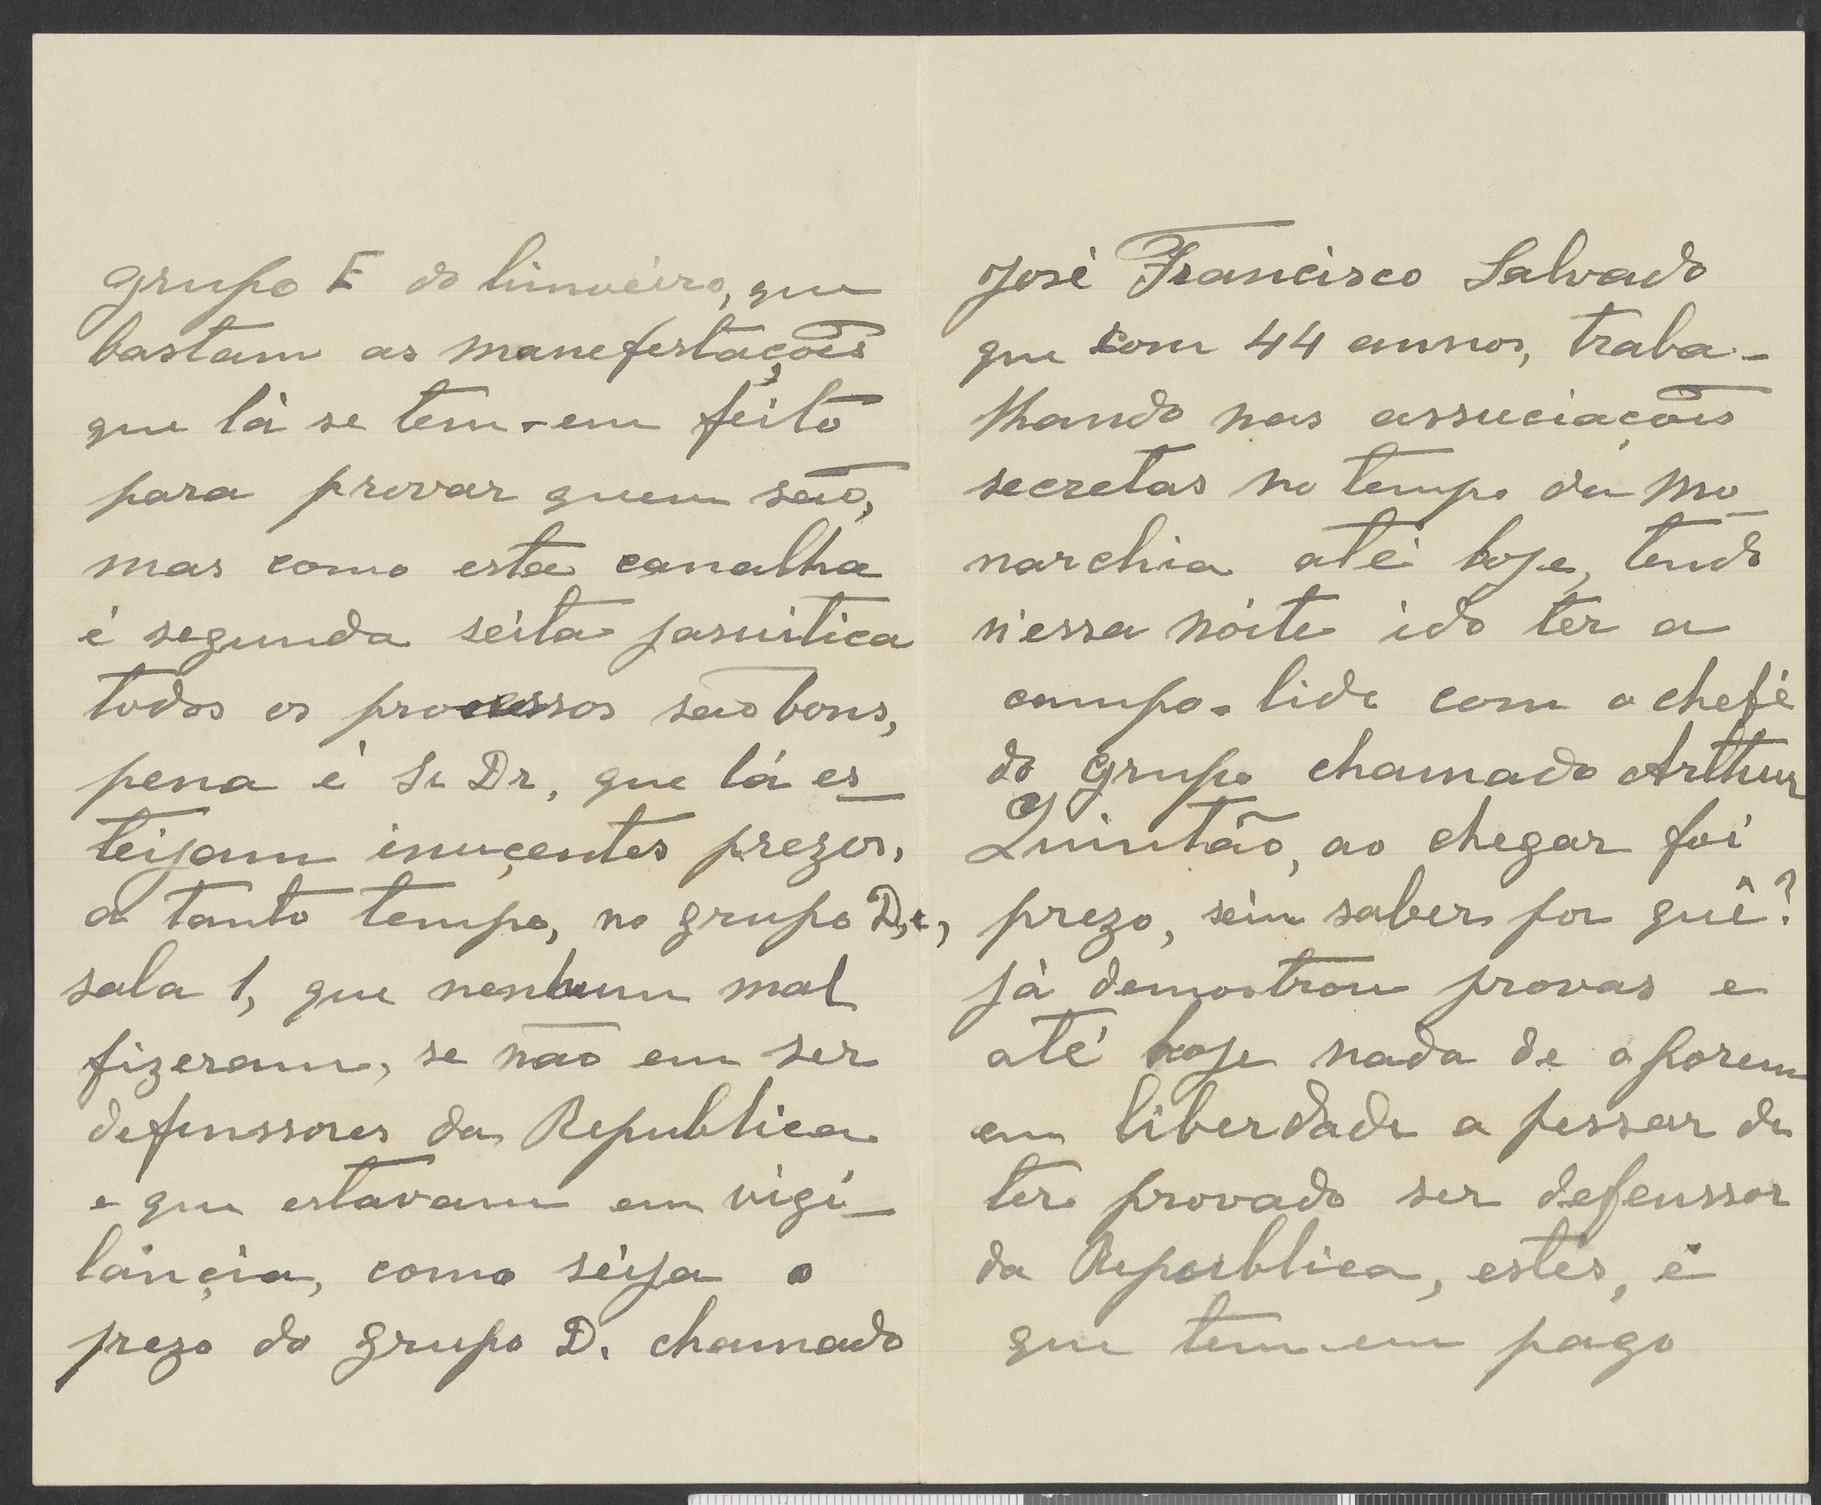 grupo E do limoèiro, que
bastam as manefestações
que là se tem-em feito
para provar quem são,
mas como esta canalha
é segunda sèita jasuitica
todos os processos são bons,
pena è Sr Dr, que lá es_
teijam inuçentes prezos,
a tanto tempo, no grupo D,
sala 1, que nenhum mal
fizeram, se não em ser
defenssores da Republica
e que estavam em vigi_
lânçia, como sèija o
prezo do grupo D. chamado
José Francisco Salvado
que com 44 annos, traba-
lhando nas assuciações
secretas no tempo da mo_
narchia até hoje, tendo
n'essa nóite ido ter a
campo-lide com o chefe
do grupo chamado Arthur
Quintão, ao chegar foi
prezo, sèim saber por quê?
jà demostrou provas e
até hoje nada de o porem
em liberdade a pessar de
ter provado ser defenssor
da Republica, estes, é
que tem-em pago